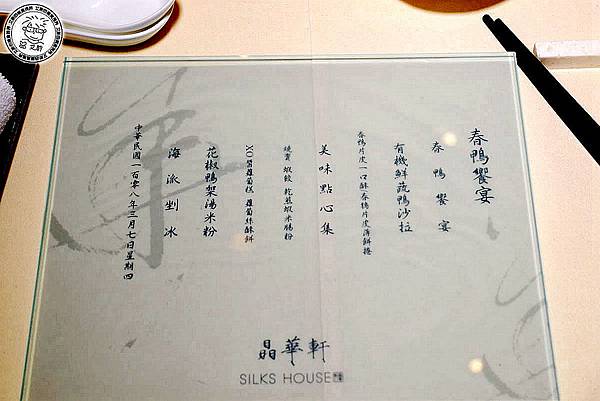 春鴨饗宴
春鴨饗宴
有機鮮蔬鴨沙拉
春鴨片皮一口酥 春鴨片皮薄餅捲
美味點心集
燒賣 蝦餃 乾煎蝦米腸粉
XO醬蘿蔔糕 蘿蔔絲酥餅
花椒鴨架湯米粉
海派剉冰
中華民國一百零八年三月七日星期四
晶華軒
SILKS HOUSE